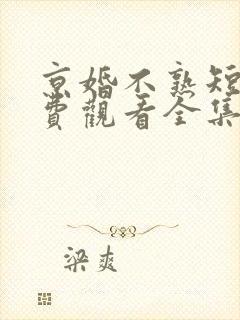 京婚不熟短
費觀看全集
梁爽